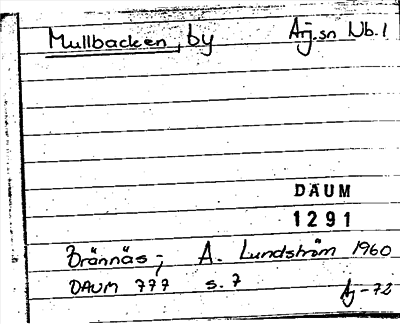 Mullbacken, by Arj.sn Nb.1
DAUM
1291
Brännäs; A. Lundström 1960
DAUM 777 s.7
Aj-72